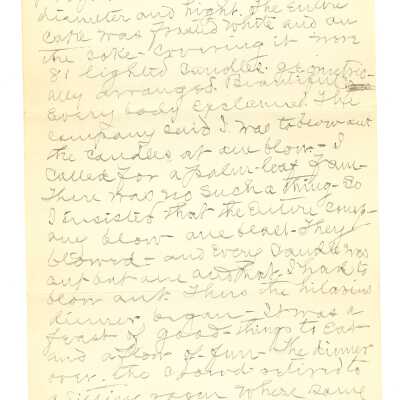 diameter and hight. The Entire
cake was frosted white and on
the cake - covering it were
81 lighted candles geometric-
ally arranged. Beautiful
Every body Exclaimed. The
company said I was to blow out
the candles at one blow - I
called for a palm-leaf fan -
There was no such a thing - So
I insisted that the Entire comp-
any blow one blast - They
blowed - and Every Candle was
out but one and that I had to
blow out. Thus the hilarious
dinner began - It was a
feast of good - things to Eat
and a flow - of - fun - The dinner
over. the crowd retired to
a sitting room where some